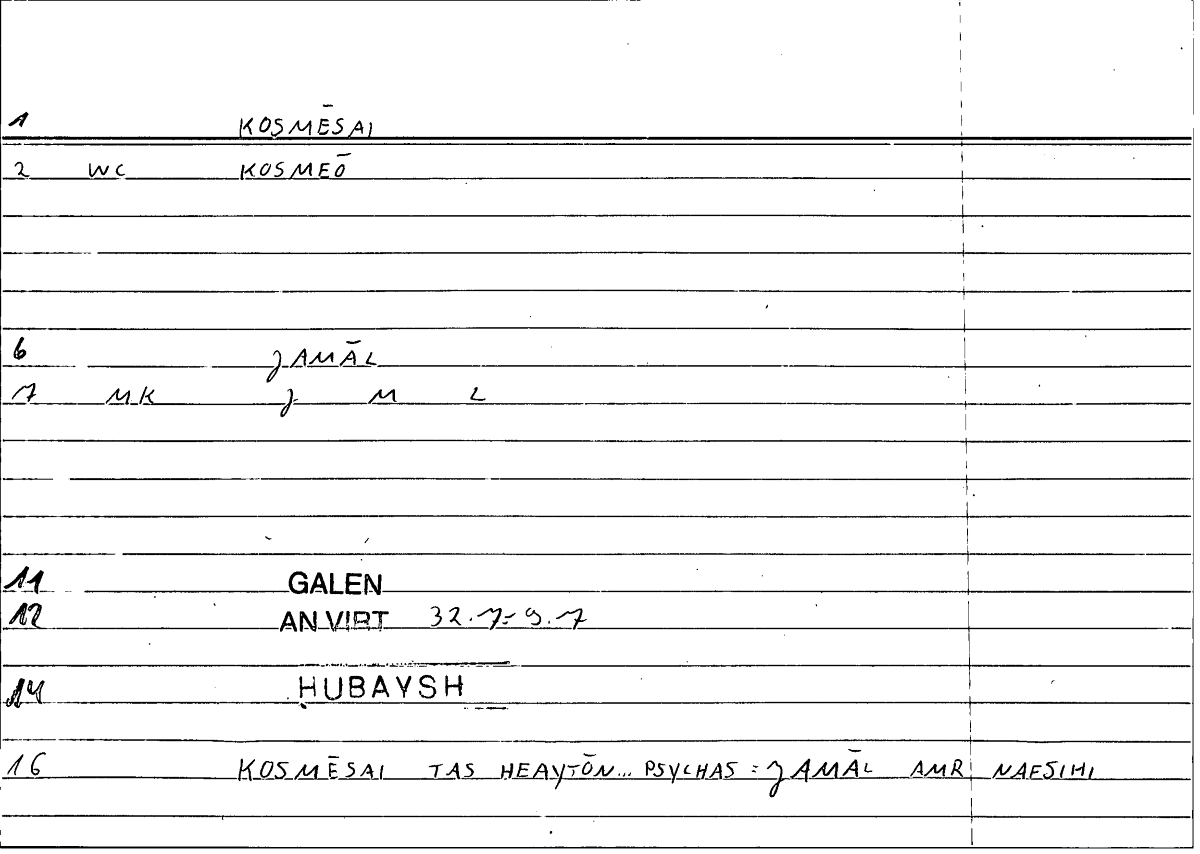 1 KOSMĒSAI
2 WC KOSMEŌ
6 JAMĀL
7 MK J M L
11 GALEN
12 AN VIRT 32.7=9.7
14 HUBAYSH
16 KOSMĒSAI TAS HEAYTŌN... PSYCHAS = JAMĀL AMR NAFSIHI